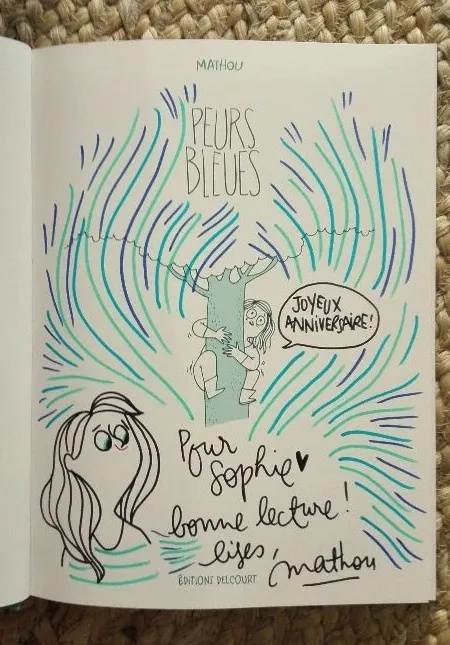 MATHOU
PEURS
BLEUES
JOYEUX
ANNIVERSAIRE!
Pour
Sophie
bonne lecture!
bises,
mathou
ÉDITIONS DELCOURT